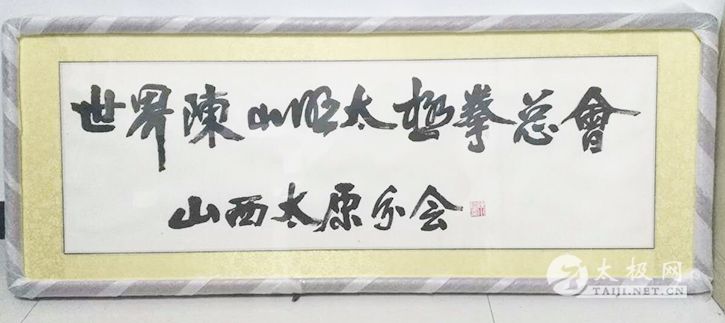 世界陳小旺太極拳总會
山西太原分会
太极网
TAIJI.NET.CN